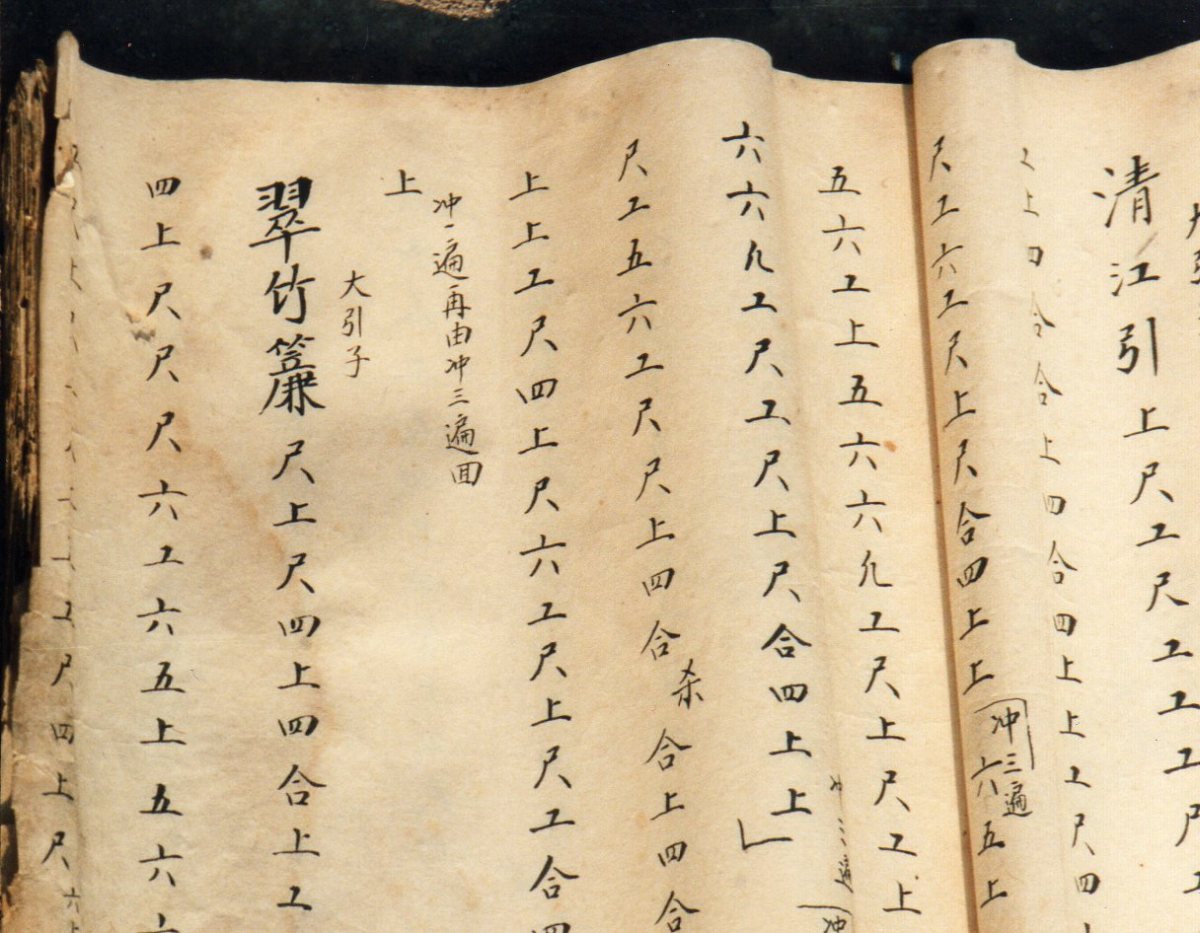 大引
清江引上尺工尺工工工尺工
工上四合合上四合四上上工尺四
尺工六工尺上尺合四上上
冲三遍
六五上
五六工上五六六凡工尺上尺工上
冲
六六凡工尺工尺上尺合四上上
尺工五六工尺尺上四合
杀
合上四合
上上工尺四上尺六工尺上尺工合四
冲一遍再由冲三遍回
上
大引子
翠竹簾尺上尺四上四合上工
四上尺尺尺六工六五上五六
工尺四上尺六上